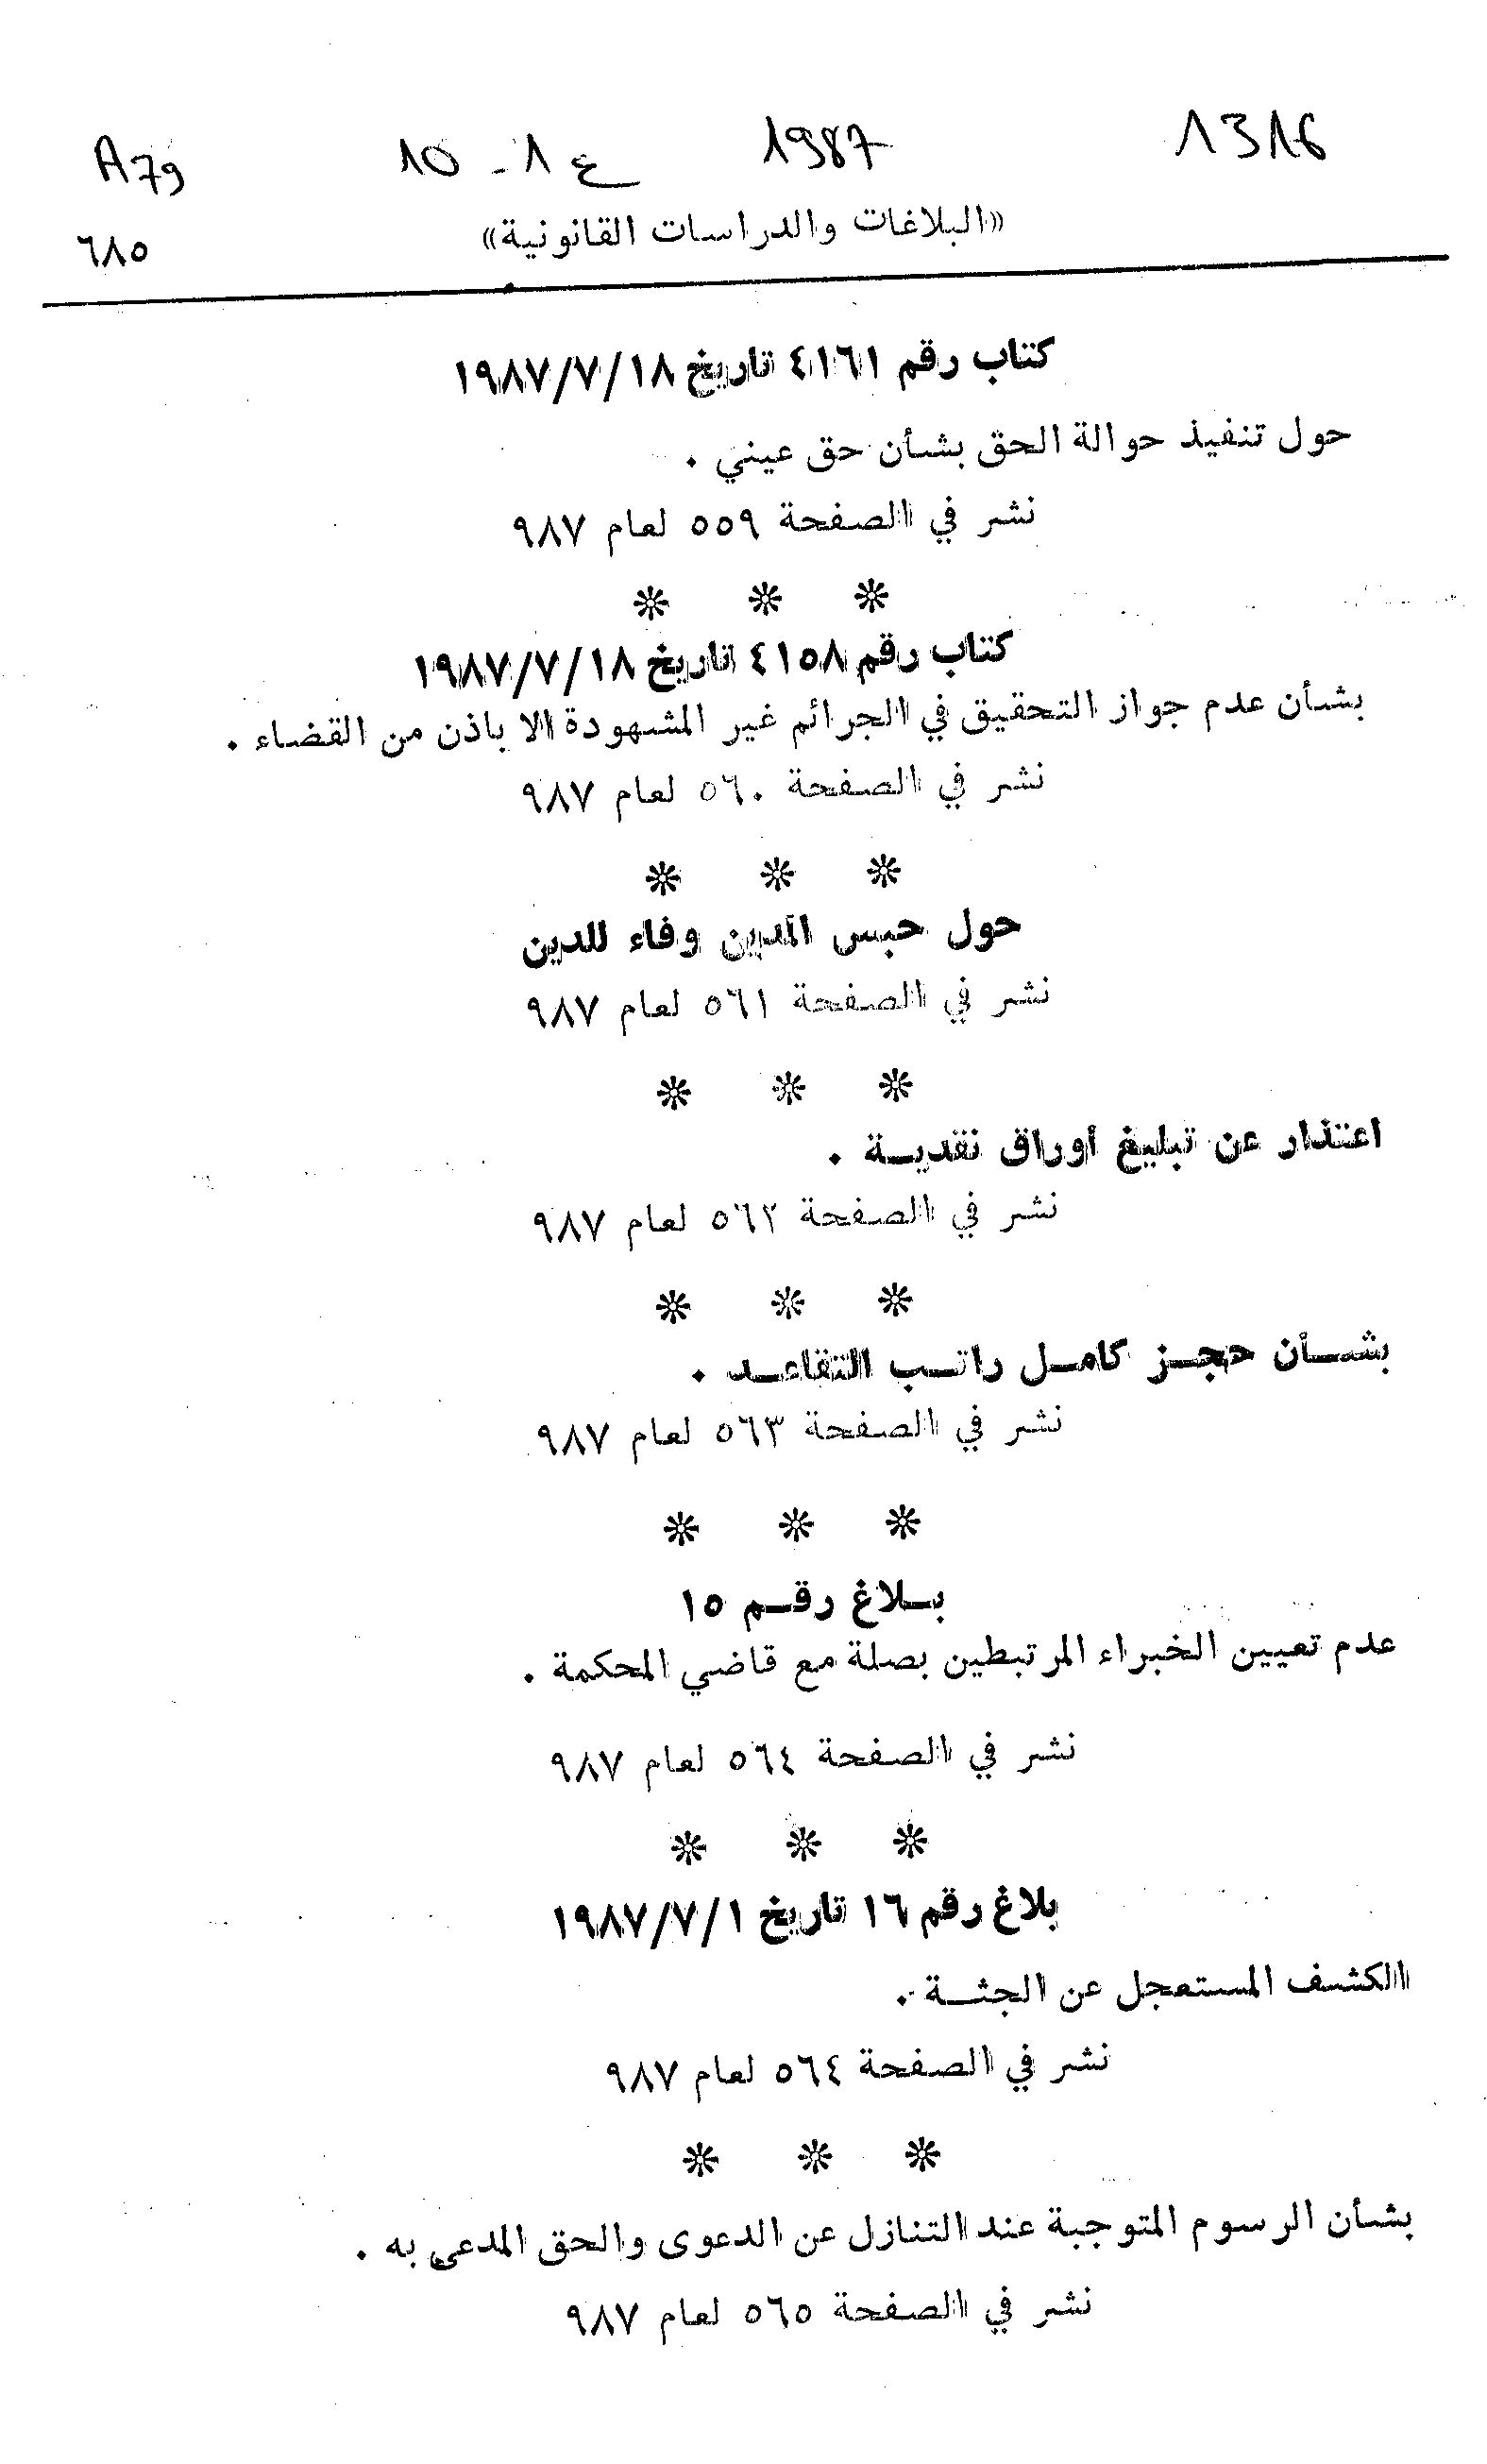 1316 1987 ع 1 - 10 A79
«البلاغات والدراسات القانونية»
٦٨٥
كتاب رقم ٤١٦١ تاريخ ١٩٨٧/٧/١٨
حول تنفيذ حوالة الحق بشأن حق عيني .
نشر في الصفحة ٥٥٩ لعام ٩٨٧
* * *
كتاب رقم ٤١٥٨ تاريخ ١٩٨٧/٧/١٨
بشأن عدم جواز التحقيق في الجرائم غير المشهودة الا باذن من القضاء .
نشر في الصفحة ٥٦٠ لعام ٩٨٧
* * *
حول حبس المدين وفاء للدين
نشر في الصفحة ٥٦١ لعام ٩٨٧
* * *
اعتذار عن تبليغ أوراق نقديـة .
نشر في الصفحة ٥٦٢ لعام ٩٨٧
* * *
بشــأن حجــز كامــل راتــب التقاعــد .
نشر في الصفحة ٥٦٣ لعام ٩٨٧
* * *
بــلاغ رقــم ١٥
عدم تعيين الخبراء المرتبطين بصلة مع قاضي المحكمة .
نشر في الصفحة ٥٦٤ لعام ٩٨٧
* * *
بلاغ رقم ١٦ تاريخ ١٩٨٧/٧/١
الكشف المستعجل عن الجثــة .
نشر في الصفحة ٥٦٤ لعام ٩٨٧
* * *
بشأن الرسوم المتوجبة عند التنازل عن الدعوى والحق المدعى به .
نشر في الصفحة ٥٦٥ لعام ٩٨٧